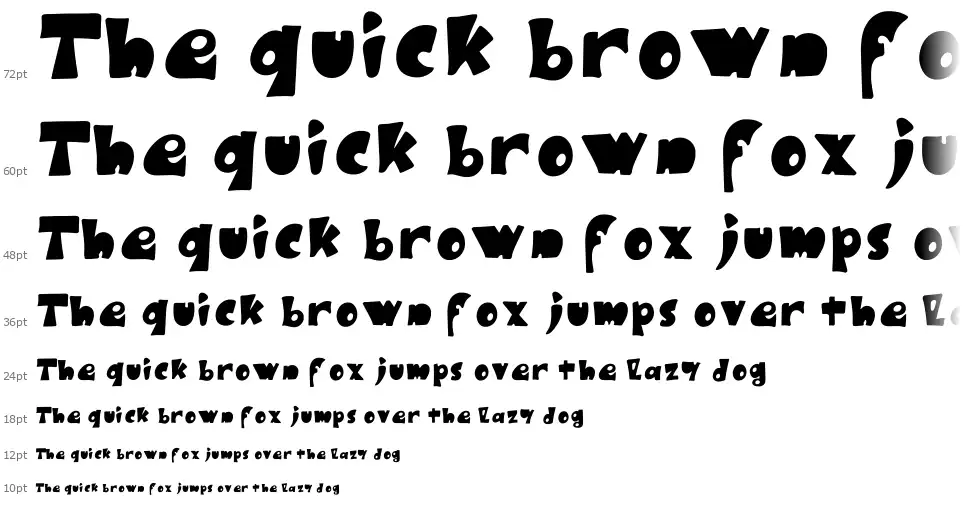 72pt The quick brown fo
60pt The quick brown fox ju
48pt The quick brown fox jumps ov
36pt The quick brown fox jumps over the la
24pt The quick brown fox jumps over the lazy dog
18pt The quick brown fox jumps over the lazy dog
12pt The quick brown fox jumps over the lazy dog
10pt The quick brown fox jumps over the lazy dog